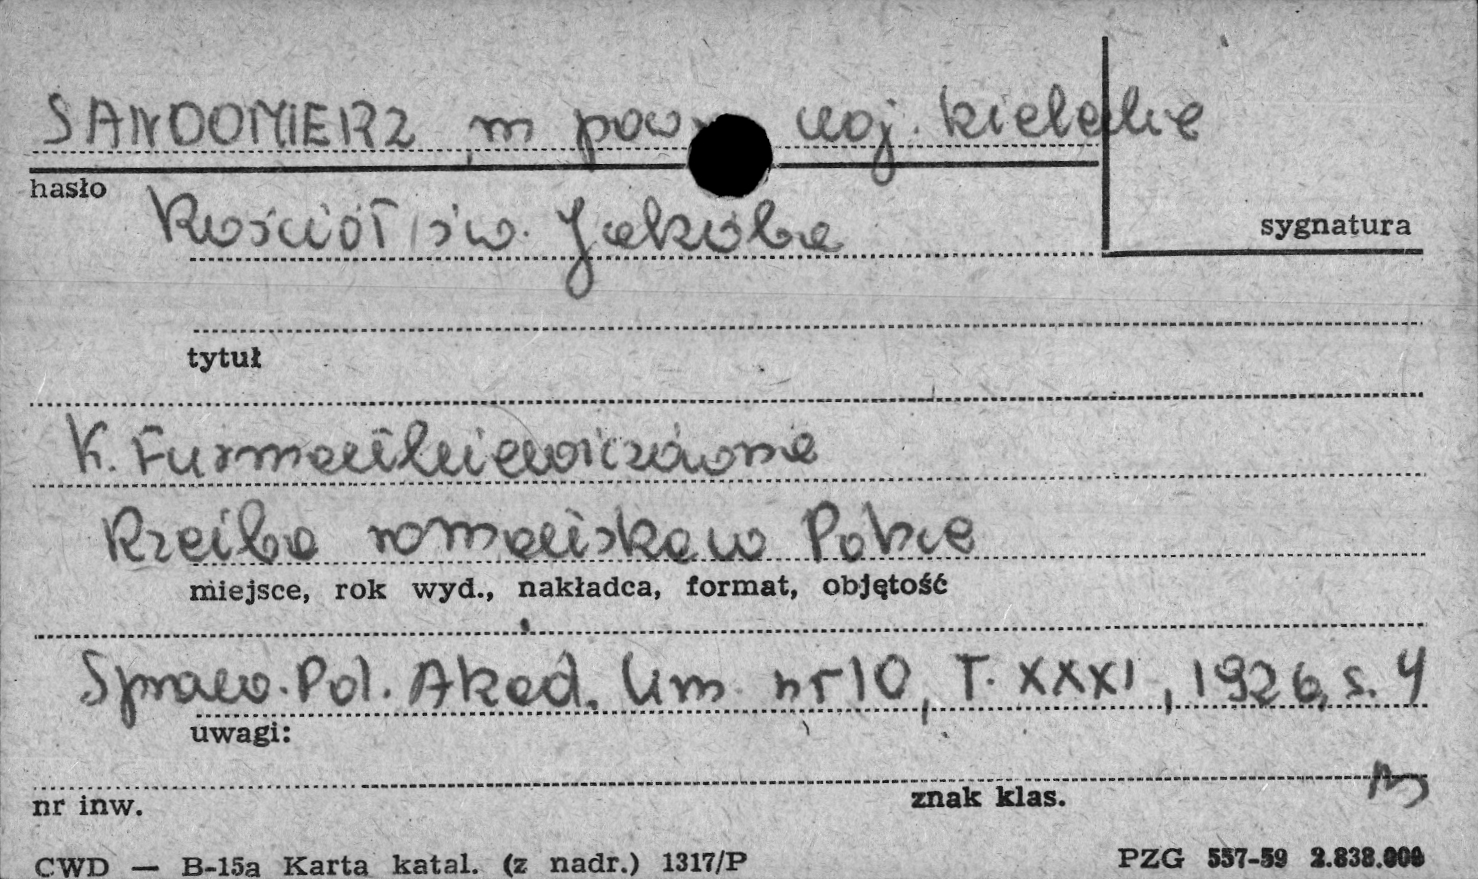 SANDOMIERZ, m pow. woj. kieleckie
hasło
Kościół św. Jakuba
sygnatura
tytuł
K. Furmankiewiczówna
Rzeźba romańska w Polsce
miejsce, rok wyd., nakładca, format, objętość
Spraw. Pol. Akad. Um. nr 10, T. XXXI, 1926, s. 4
uwagi:
nr inw.
znak klas.
CWD — B-15a Karta katal. (z nadr.) 1317/P
PZG 557-59 2.838.000